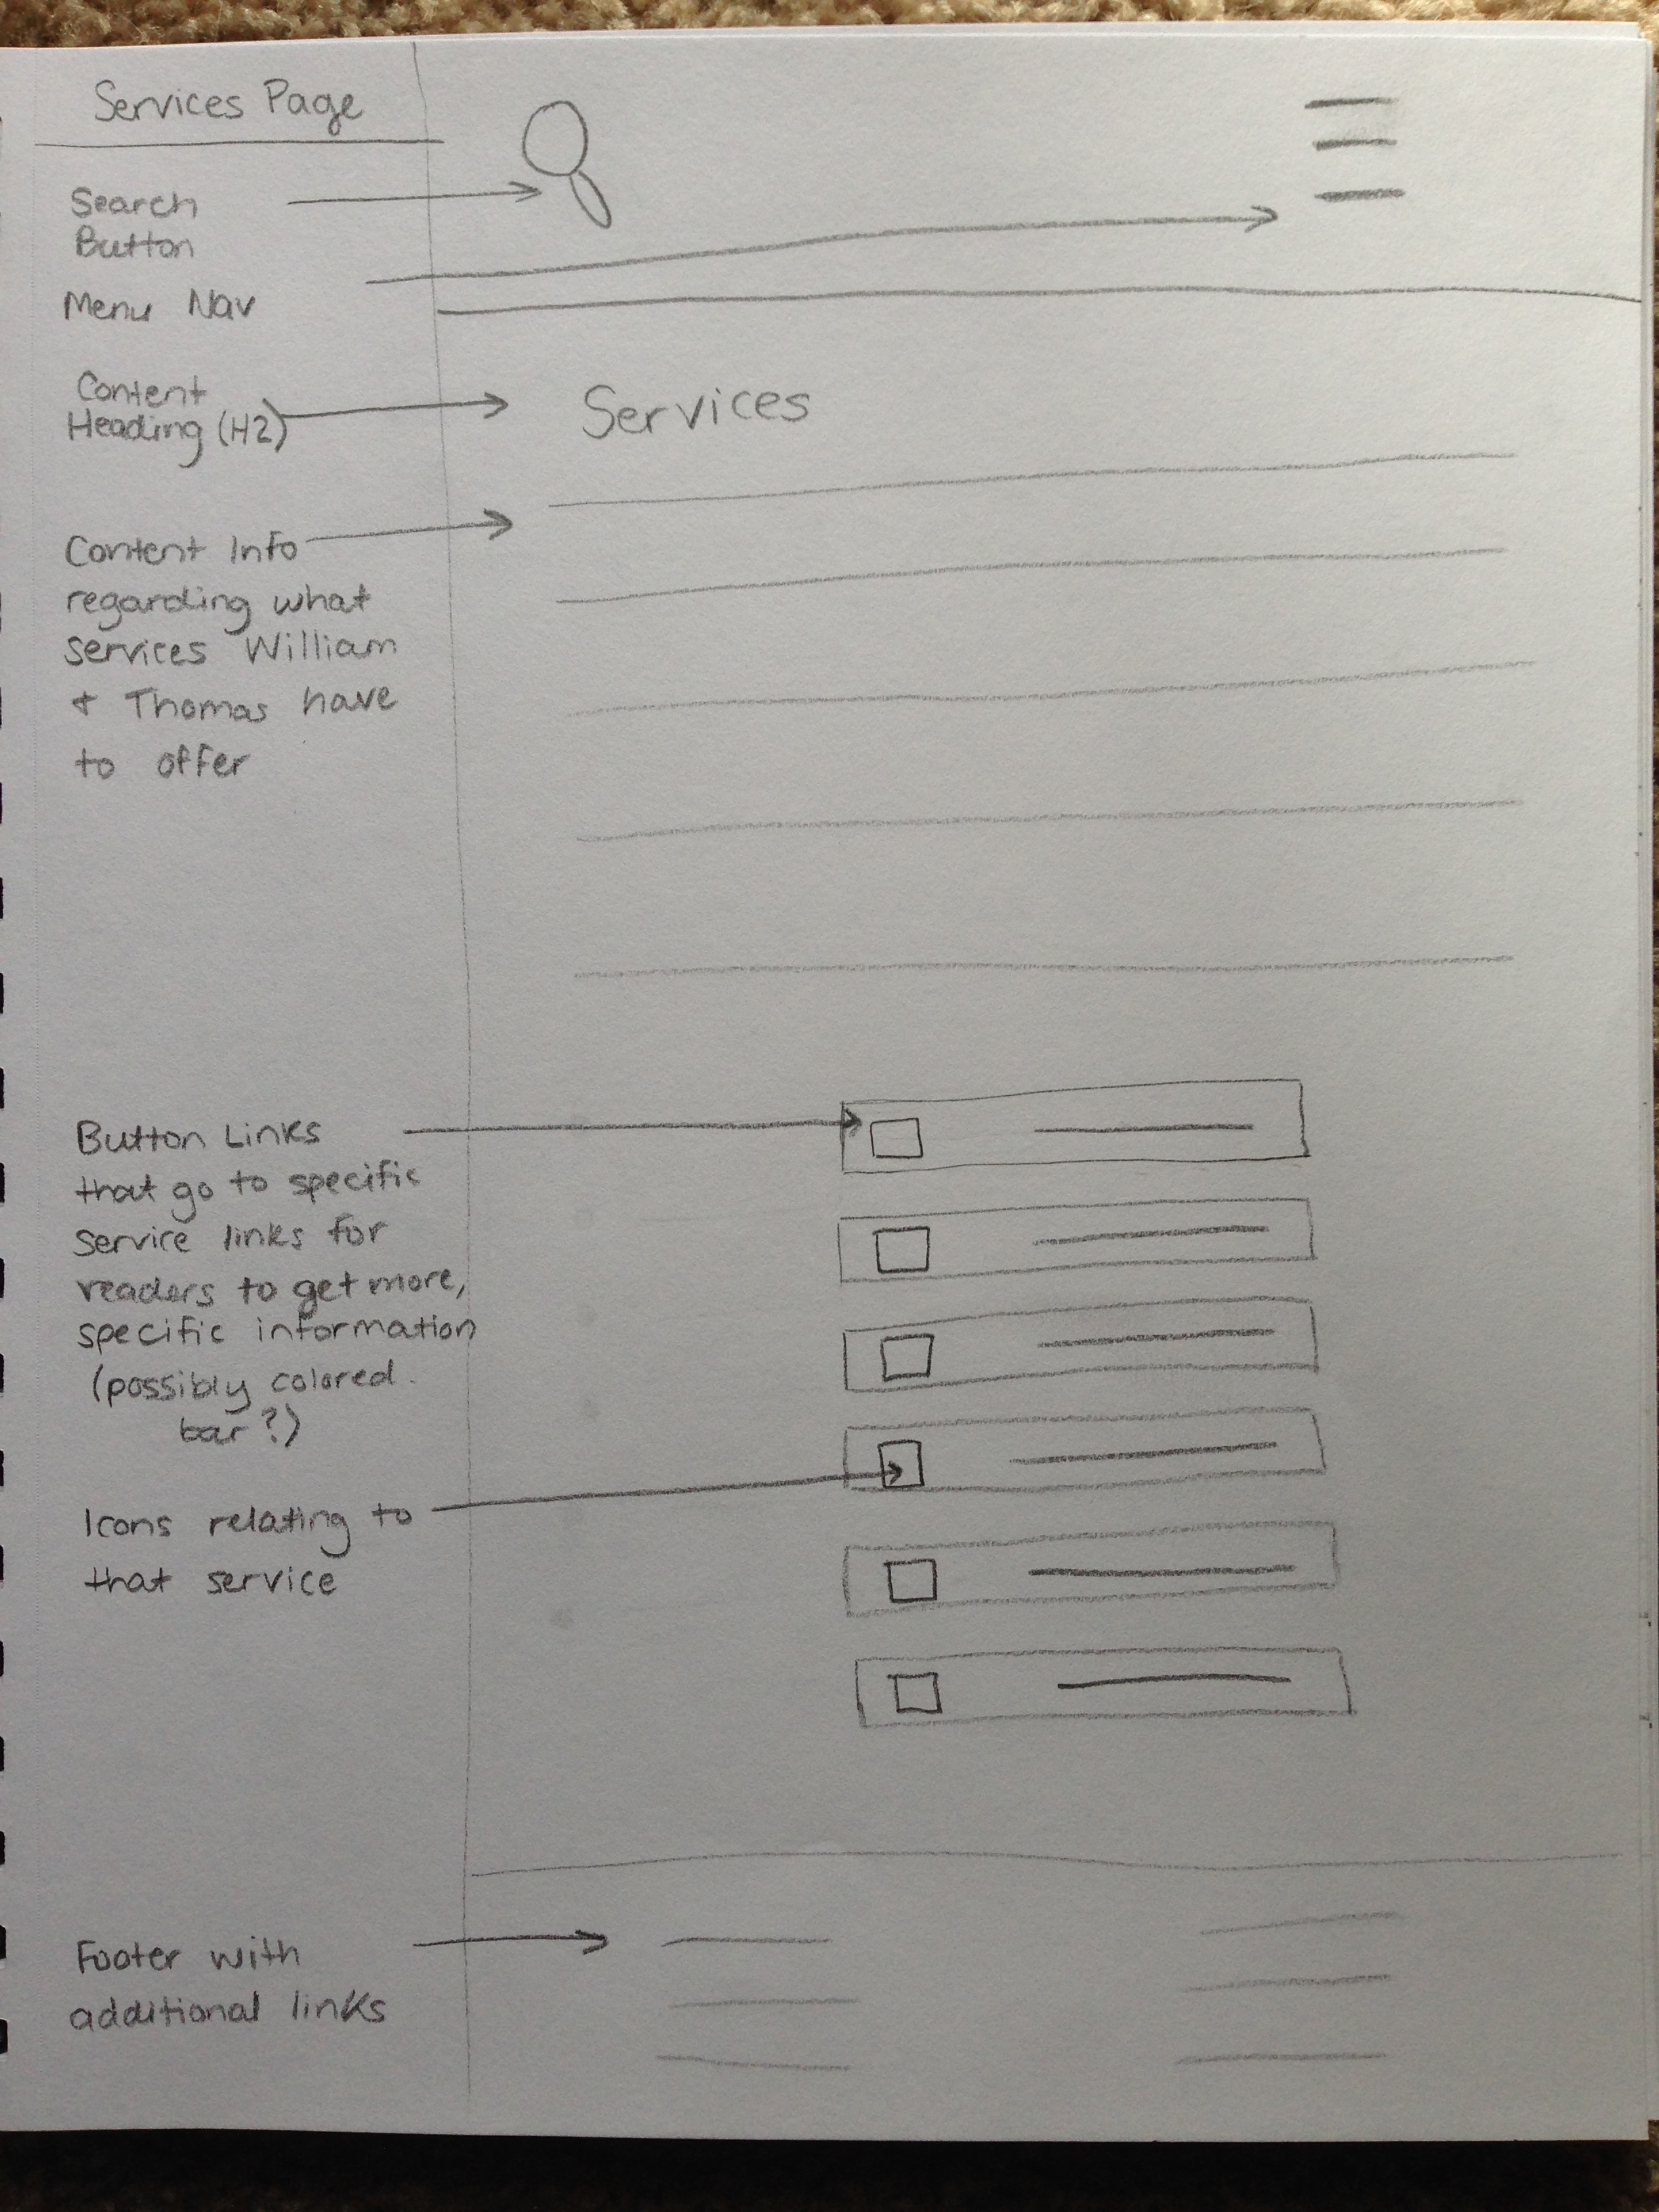 Services Page
Search
Button
Menu Nav
Content
Heading (H2)
Services
Content Info
regarding what
services William
+ Thomas have
to offer
Button Links
that go to specific
service links for
readers to get more,
specific information
(possibly colored
bar?)
Icons relating to
that service
Footer with
additional links